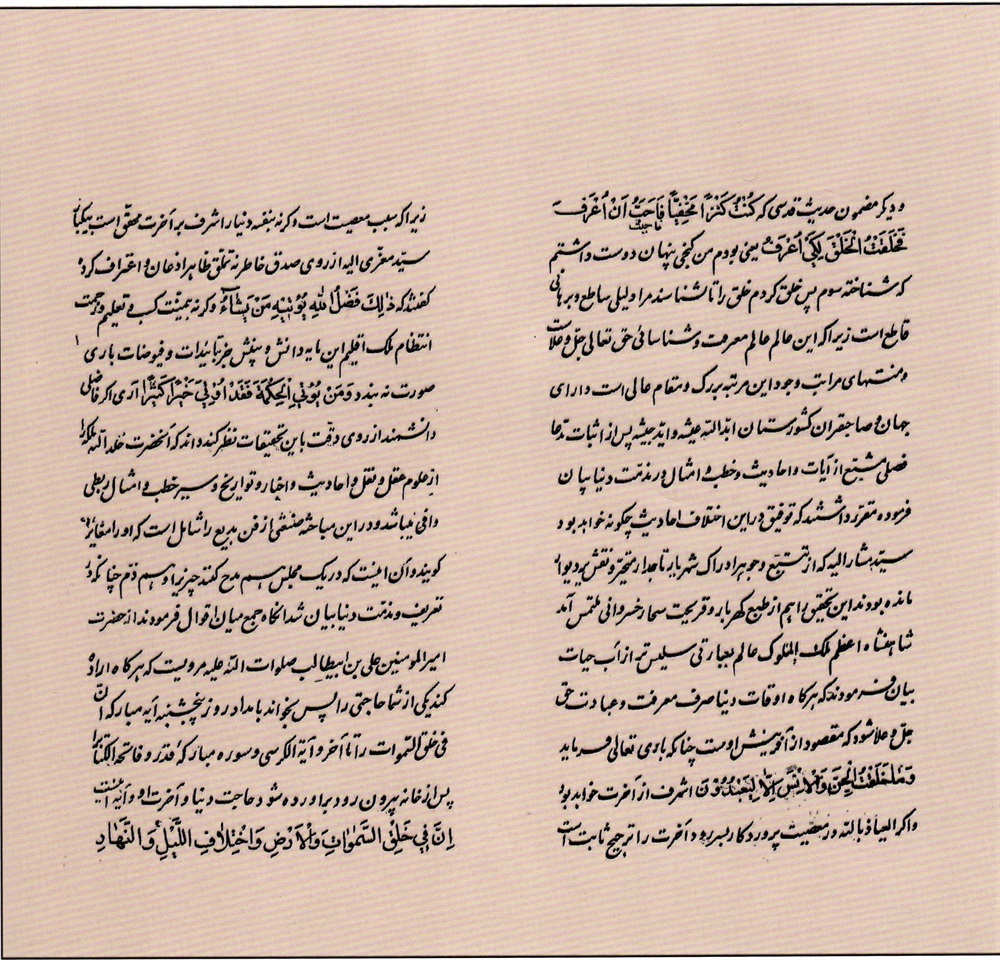 و دیگر مضمون حدیث قدسی که کُنْتُ کَنْزاً مَخْفِیّاً فَاَحْبَبْتُ اَنْ اُعْرَفَ
فَخَلَقْتُ الْخَلْقَ لِکَیْ اُعْرَفَ یعنی بودم من گنجی پنهان دوست داشتم
که شناخته شوم پس خلق کردم خلق را تا شناسند مرا دلیلی ساطع و برهانی
قاطع است زیرا که این عالم عالم معرفت و شناسائی حق تعالی جل و علاست
و منتهای مراتب وجود این مرتبه بزرگ و مقام عالی است دارای
جهان و صاحبقران کشورستان ابدالله عیشه و اید جیشه پس از اثبات مدعا
فصلی مشبع از آیات و احادیث و خطب و امثال در مذمت دنیا بیان
فرموده مقرر داشتند که توفیق در این اختلاف احادیث چگونه خواهد بود
سید مشارالیه که از تتبع و جوهر ادراک شهریار تاجدار متحیر و نقش بر دیوار
مانده بودند این تحقیق را هم از طبع گهربار و قریحت سحار خسروانی ملتمس آمد
شاهنشاه اعظم ملک الملوک عالم بعبارتی سلیس تر از آب حیات
بیان فرمودند که هرگاه اوقات دنیا صرف معرفت و عبادت حق
جل و علا شود که مقصود از آفرینش اوست چنانکه باری تعالی فرماید
وَمٰا خَلَقْتُ الْجِنَّ وَالْاِنْسَ اِلّا لِیَعْبُدُوْنَ اشرف از آخرت خواهد بود
و اگر العیاذ بالله در معصیت پروردگار بسر رود آخرت را ترجیح ثابت است
زیرا که سبب معصیت است و گرنه بنفسه دنیا را شرف بر آخرت محقق است بیکبار
سید معزی الیه از روی صدق خاطر نه تملق ظاهر اذعان و اعتراف کرده
گفتند که ذٰلِکَ فَضْلُ اللهِ یُؤْتِیْهِ مَنْ یَشٰاءُ و گرنه بمیمنت کسب و تعلیم و زحمت
انتظام ملک اقلیم این پایه دانش و بینش جز بتائیدات و فیوضات باری
صورت نه بندد وَمَنْ یُؤْتَی الْحِکْمَةَ فَقَدْ اُوْتِیَ خَیْراً کَثیراً آری اگر فاضلی
دانشمند از روی دقت باین تحقیقات نظر کند داند که آنحضرت خلد الله ملکه را
از علوم عقل و نقل و احادیث و اخبار و تواریخ و سیر خطب و امثال ربطی
وافی میباشد و در این مباحثه صنعتی از فن بدیع را شامل است که او را مغایره
گویند و آن اینست که در یک مجلس هم مدح کنند چیزیرا و هم ذم چنانکه در
تعریف و مذمت دنیا بیان شد انگاه جمع میان اقوال فرمودند از حضرت
امیرالمومنین علی بن ابیطالب صلوات الله علیه مرویست که هرگاه اراده
کند یکی از شما حاجتی را پس بخواند بامداد روز پنجشنبه آیه مبارکه انّ
فی خلق السموات را تا آخر و آیة الکرسی و سوره مبارکهٔ قدر و فاتحة الکتاب را
پس از خانه بیرون رود برآورده شود حاجت دنیا و آخرت او و آیه اینست
اِنَّ فِی خَلْقِ السَّمٰوٰاتِ وَالْاَرْضِ وَاخْتِلافِ اللَّیْلِ وَالنَّهٰارِ